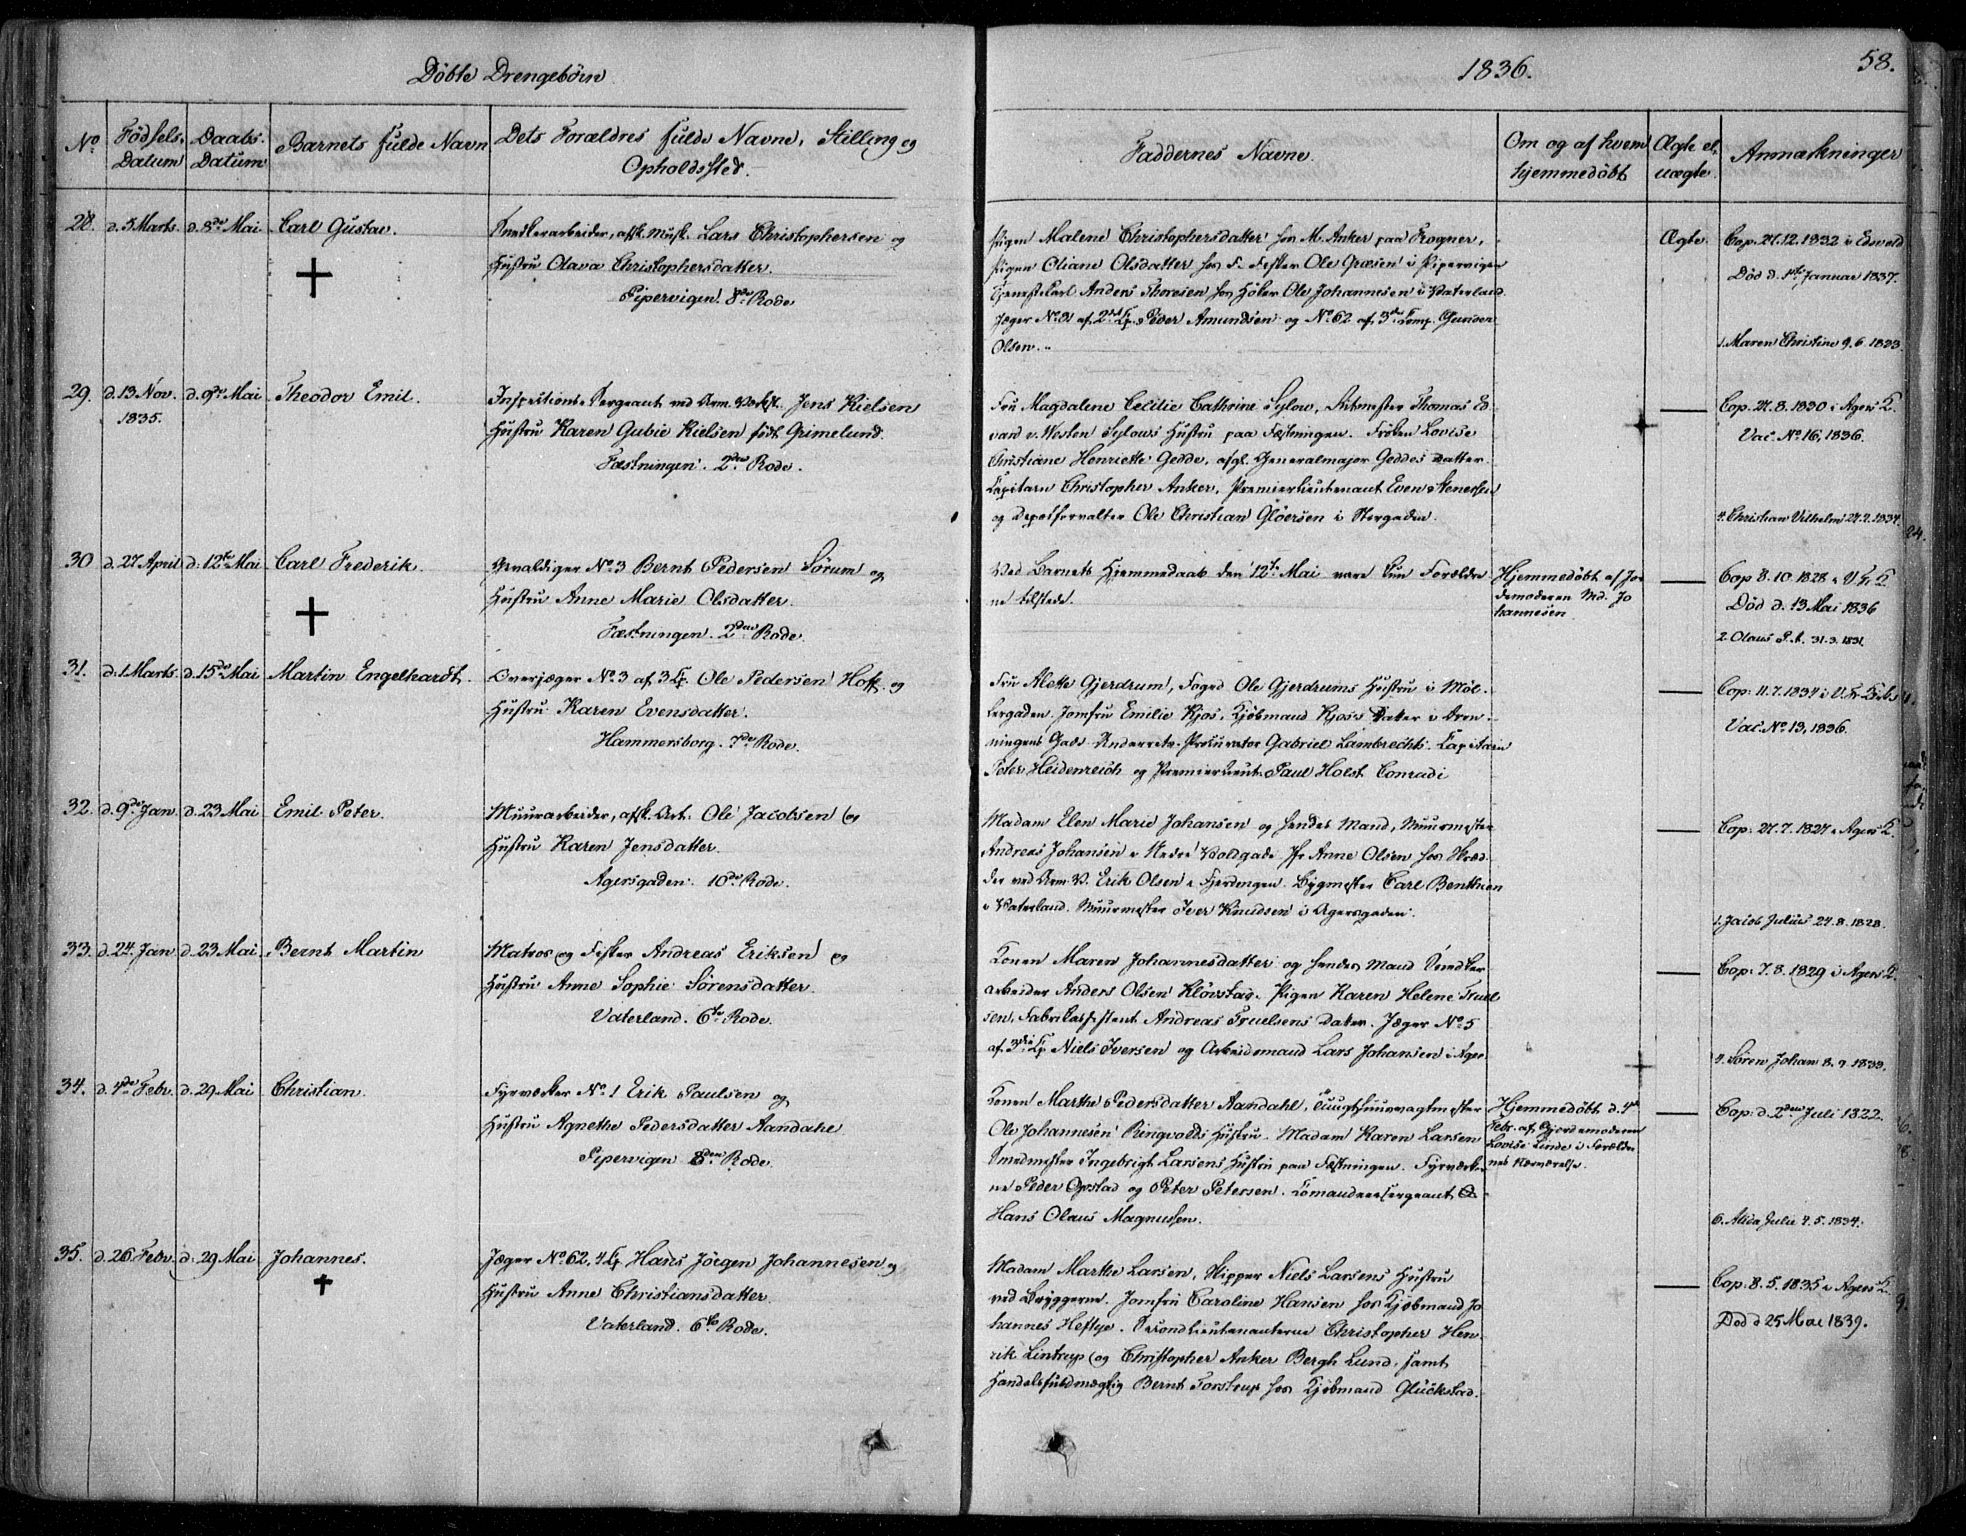 Døbte Drengebørn
1836.
58.
No
Fødsels Datum
Daabs Datum
Barnets fulde Navn
Dets Forældres fulde Navne, Stilling og Opholdssted.
Faddernes Navne.
Om og af hvem hjemmedøbt
Ægte el. uægte.
Anmærkninger
28. d. 5 Marts d. 8de Mai Carl Gustav.
Snedkerarbeider, afsk. Musk. Lars Christophersen og
Hustru Olava Christophersdatter.
Pipervigen. 8de Rode
Pigen Malene Christophersdatter hos M. Anker paa Frogner,
Pigen Oliane Olsdatter hos F. Fisker Ole Græsen i Pipervigen
Tjenestekarl Anders Thoresen hos Høker Ole Johannesen i Vaterland.
Jæger No 31 af 2det Cp. Peder Amundsen og No 62 af 3die Comp. Gunder
Olsen.
Ægte.
Cop. 27.12.1832 i Edsvold
Død d. 1ste Januar 1837.
1. Maren Christine 9.6.1833.
29. d. 13 Nov. 1835. d. 9de Mai Theodor Emil.
Inspections-Sergeant ved Arm. Værkst. Jens Kielsen
Hustru Karen Gubie Kielsen født Grimelund.
Fæstningen. 2den Rode.
Fru Magdalene Cecilie Cathrine Sylow, Ritmester Thomas Ed
vard v. Westen Sylows Hustru paa Fæstningen. Frøken Lovise
Christiane Henriette Gedde, afgl. Generalmajor Geddes Datter.
Capitain Christopher Anker, Premierlieutenant Even Stenersen
og Depotforvalter Ole Christian Gløersen i Storgaden.
Cop. 27.8.1830 i Agers K.
Vac. No 16, 1836.
2. Christian Vilhelm 27.2.1834.
30 d. 27 April d. 12te Mai Carl Frederik.
Gevaldiger No 3 Bernt Pedersen Sørum og
Hustru Anne Marie Olsdatter.
Fæstningen. 2den Rode.
Ved Barnets Hjemmedaab den 12te Mai vare kun Forældre
ne tilstede.
Hjemmedøbt af Jor
demoderen Md. Jo
hannesen.
Cop 8.10.1828 i V. Fr. K
Død d. 13 Mai 1836
2. Olaus P. A. 31.3.1831.
31. d. 1 Marts d. 15de Mai Martin Engelhardt.
Overjæger No 3 af 3 Cp. Ole Pedersen Hoff og
Hustru Karen Evensdatter.
Hammersborg. 7de Rode.
Fru Alette Gjerdrum, Foged Ole Gjerdrums Hustru i Møl
lergaden. Jomfru Emilie Kjos, Kjøbmand Kjoss Datter i Dron
ningens Gade. Underrets-Procurator Gabriel Lambrechts. Capitain
Peter Heidenreich og Premierlieut. Paul Holst Conradi
Cop. 11.7.1834 i V. Fr.
Vac. No 13, 1836.
32. d. 9de Jan. d. 23 Mai Emil Peter.
Muurarbeider, afsk. Art. Ole Jacobsen og
Hustru Karen Jensdatter.
Agersgaden. 10de Rode.
Madam Elen Marie Johansen og hendes Mand, Muurmester
Andreas Johansen i Nedre Voldgade. Pige Anne Olsen hos Skræd
der ved Arm. V. Erik Olsen i Fjerdingen. Bygmester Carl Benthien
i Vaterland. Muurmester Iver Knudsen i Agersgaden.
Cop. 27.7.1827 i Agers K.
1. Jacob Julius 24.8.1828.
33. d. 24. Jan d. 23 Mai Bernt Martin
Matros og Fisker Andreas Eriksen og
Hustru Anne Sophie Sørensdatter.
Vaterland. 6te Rode.
Konen Maren Johannesdatter og hendes Mand Snedker
arbeider Anders Olsen Kløvstag. Pigen Karen Helene Truel
sen, Fabrikassistent Andreas Truelsens Datter. Jæger No 5
af 3die Cp. Niels Iversen og Arbeidsmand Lars Johansen i Ager
Cop. 7.8.1829 i Agers K.
2. Søren Johan 8.9.1833.
34. d. 4de Febr. d. 29 Mai Christian.
Fyrværker No 1 Erik Paulsen og
Hustru Agnethe Pedersdatter Aandahl
Pipervigen 8de Rode.
Konen Marthe Pedersdatter Aandahl, Tuugthuusvagtmester
Ole Johannesen Ringvolds Hustru. Madam Karen Larsen
Smedmester Ingebrigt Larsens Hustru paa Fæstningen. Fyrværker
ne Peder Opstad og Peter Petersen. Commandeersergeant
Hans Olaus Magnussen.
Hjemmedøbt d. 4de
Febr. af Gjordemoderen
Lovise Linde i Forældre
nes Nærværelse.
Cop. d. 2den Juli 1822.
6. Alida Julie 4.5.1834.
35. d. 26 Febr. d. 29 Mai Johannes.
Jæger No 62, 4 Cp. Hans Jörgen Johannesen og
Hustru Anne Christiansdatter.
Vaterland. 6te Rode.
Madam Marthe Larsen, Skipper Niels Larsens Hustru
ved Bryggerne. Jomfru Caroline Hansen hos Kjøbmand Jo
hannes Heftye. Secondlieutenanterne Christopher Hen
rik Lintrup og Christopher Anker Bergh Lund, samt
Handelsfuldmægtig Bernt Torstrup hos Kjøbmand Glückstad.
Cop. 8.5.1835 i Agers K.
Død d 25 Mai 1839.